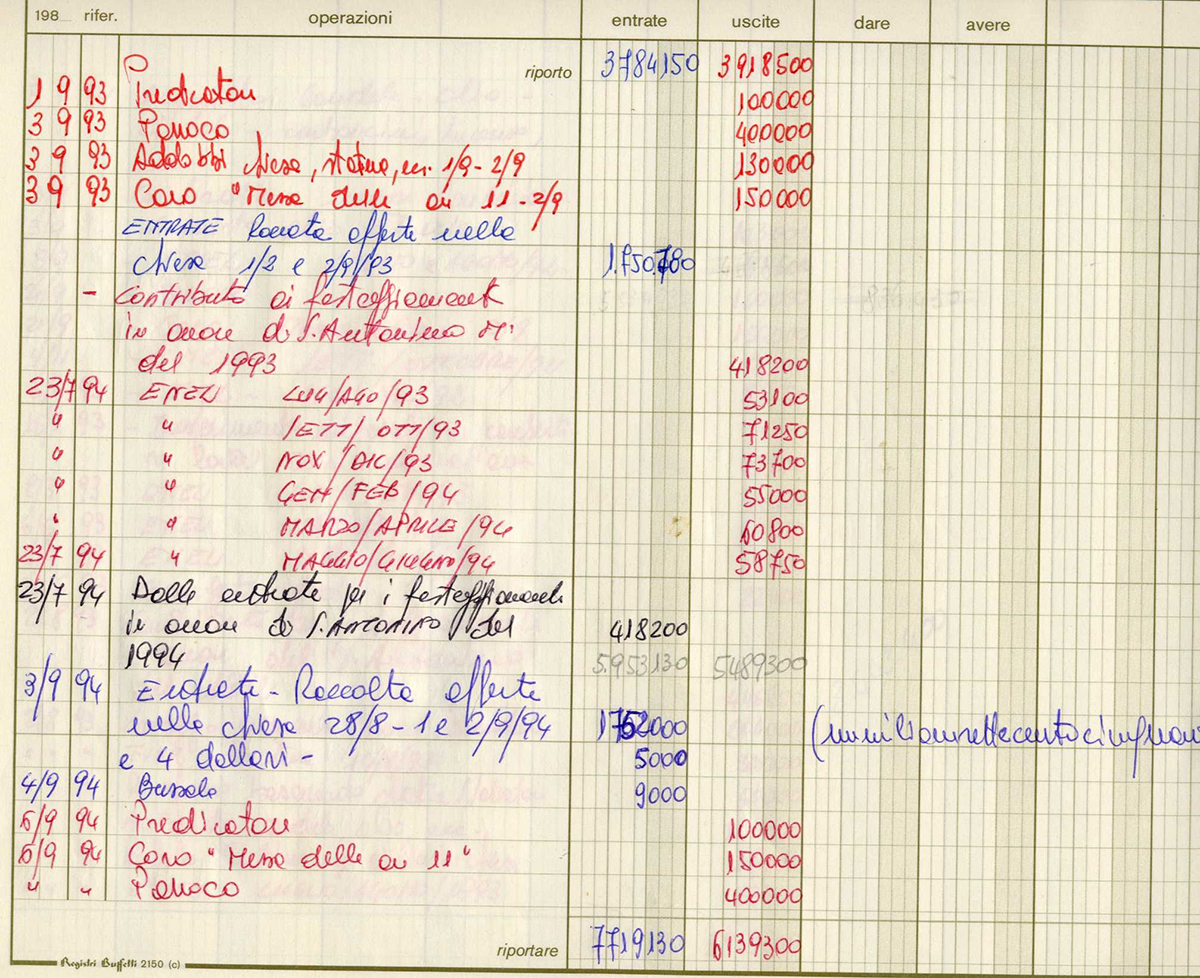 198 rifer. operazioni entrate uscite dare avere
riporto 3784150 3918500
1 9 93 Predicatore 100000
3 9 93 Parroco 400000
3 9 93 Addobbi chiesa, statue, ecc. 1/9-2/9 130000
3 9 93 Coro "Messa delle ore 11-2/9 150000
ENTRATE Raccolta offerte nella
chiesa 1/2 e 2/9/93 1.750.780
- Contributo ai festeggiamenti
in onore di S. Antonino M.
del 1993 418200
23/7 94 ENEL LUG/AGO/93 53100
" " SETT/OTT/93 71250
" " NOV/DIC/93 73700
" " GEN/FEB/94 55000
" " MARZO/APRILE/94 60800
23/7 94 " MAGGIO/GIUGNO/94 58750
23/7 94 Dalle entrate per i festeggiamenti
in onore di S. ANTONINO del 418200
1994 5.953130 5489300
3/9 94 Entrate - Raccolta offerte
nella chiesa 28/8-1 e 2/9/94 1752000 (unmilionesettecentocinquan
e 4 dollari - 5000
4/9 94 Bussola 9000
6/9 94 Predicatore 100000
6/9 94 Coro "Messa delle ore 11" 150000
" " Parroco 400000
riportare 7719130 6139300
Registri Buffetti 2150 (c)